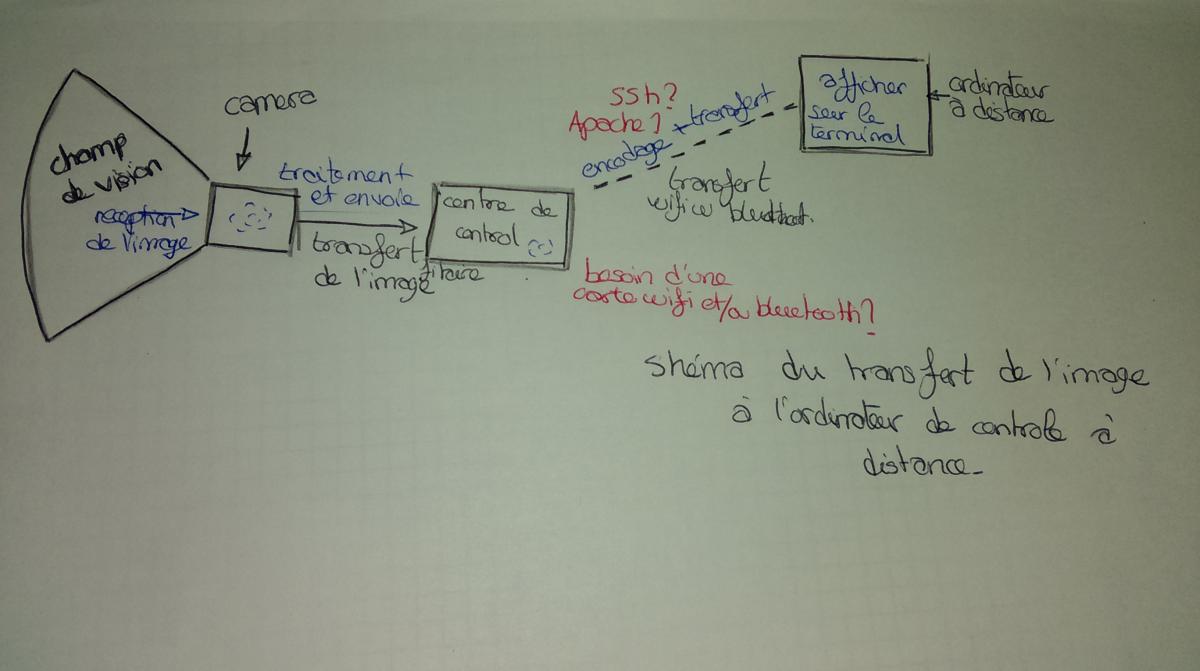 camera
champ
de vision
reception
de l'image
traitement
et envoie
transfert
de l'image
centre de
control
ssh?
Apache?
encodage + transfert
transfert
afficher
sur le
terminal
ordinateur
à distance
besoin d'une
carte wifi et/ou bluetooth?
shéma du transfert de l'image
à l'ordinateur de controle à
distance